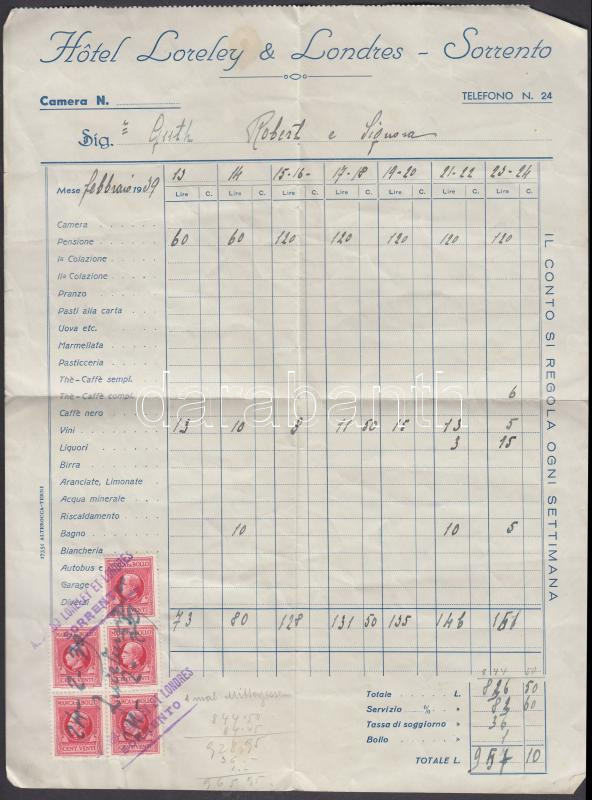 Hôtel Loreley & Londres - Sorrento
Camera N.
TELEFONO N. 24
Sig. Robert e Signora
Mese febbraio 1939 13 14 15-16- 17-18 19-20 21-22 23-24
Lire C. Lire C. Lire C. Lire C. Lire C. Lire C. Lire C.
Camera
Pensione 60 60 120 120 120 120 120
Iª Colazione
IIª Colazione
Pranzo
Pasti alla carta
Uova etc.
Marmellata
Pasticceria
Thè-Caffè sempl.
Thè-Caffè compl. 6
Caffè nero
Vini 13 10 8 11 50 15 13 5
Liquori 3 15
Birra
Aranciate, Limonate
Acqua minerale
Riscaldamento
Bagno 10 10 5
Biancheria
Autobus e
Garage
Diversi
73 80 128 131 50 135 146 151
IL CONTO SI REGOLA OGNI SETTIMANA
17351 ALTEROCCA-TERNI
darabanth
LORELEY ET LONDRES
SORRENTO
MARCA DA BOLLO
MARCA DA BOLLO
MARCA DA BOLLO
CENT. VENTI
CENT. VENTI
844 50
Totale L. 826 50
Servizio % » 82 60
Tassa di soggiorno » 36
Bollo » 1
TOTALE L. 957 10
844.50
84.45
928.95
36.-
965.95